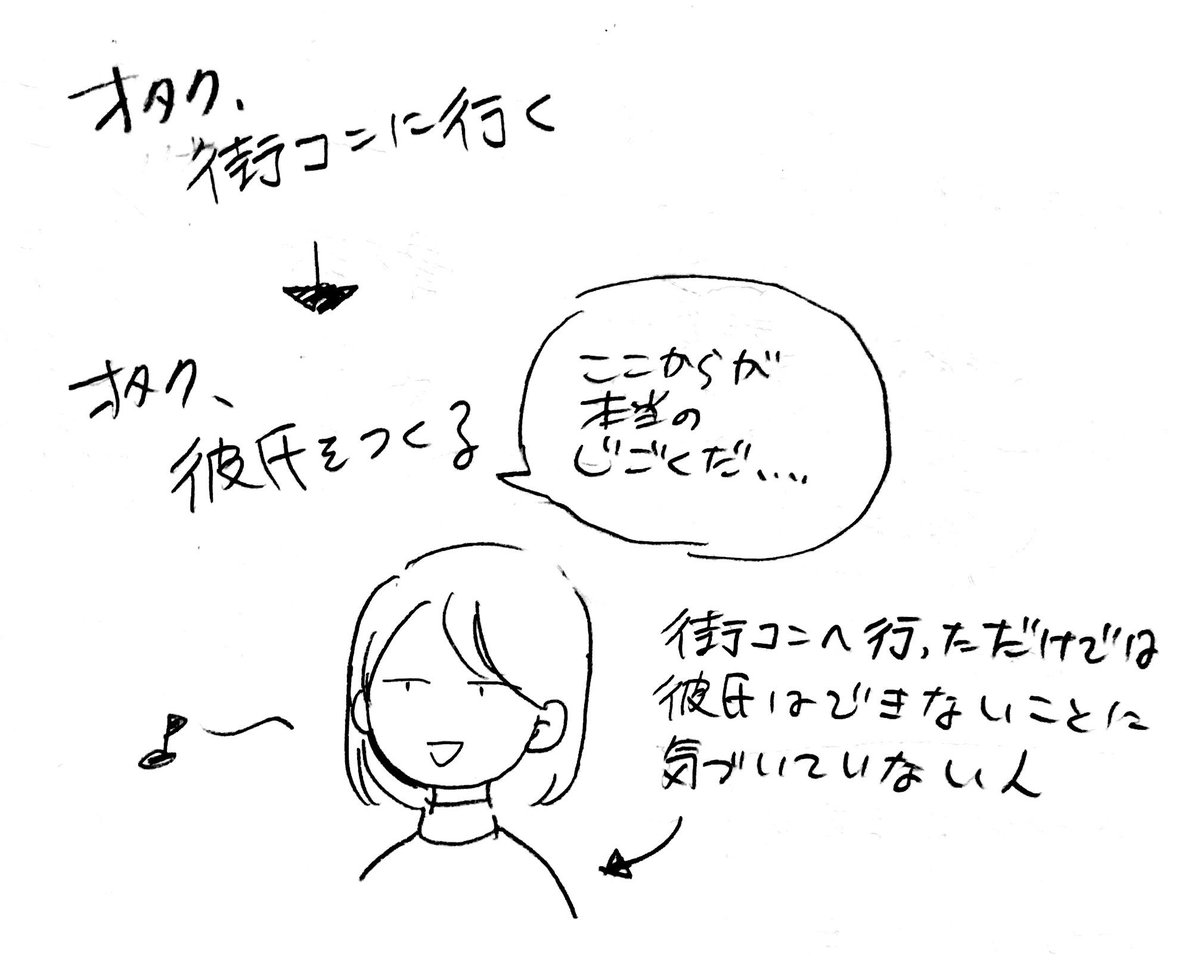 オタク、
街コンに行く
オタク、
彼氏をつくる
ここからが
本当の
じごくだ....
街コンへ行ったただけでは
彼氏はできないことに
気づいていない人